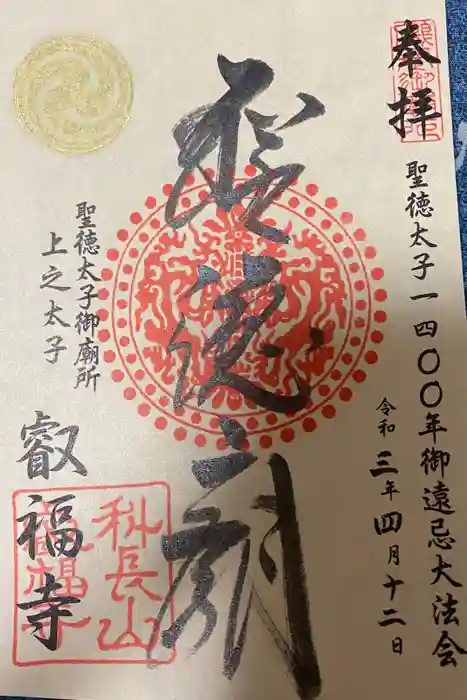 奉拝
聖徳太子一四〇〇年御遠忌大法会
令和三年四月十二日
聖徳廟
聖徳太子御廟所
上之太子
叡福寺
科長山
叡福寺